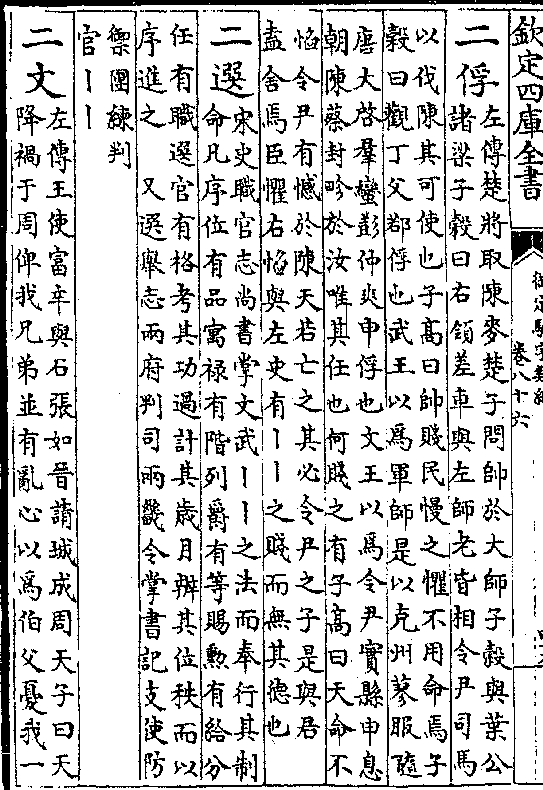 欽定四庫全書
御定駢字類編
卷八十六
二俘 左傳楚將取陳麥楚子問帥於大師子穀與葉公
諸梁子穀曰右領差車與左師老皆相令尹司馬
以伐陳其可使也子高曰帥賤民慢之懼不用命焉子
穀曰觀丁父鄀俘也武王以爲軍師是以克州蓼服隨
唐大啓羣蠻彭仲爽申俘也文王以爲令尹實縣申息
朝陳蔡封畛於汝唯其任也何賤之有子高曰天命不
慆令尹有憾於陳天若亡之其必令尹之子是與君
盍舍焉臣懼右慆與左史有丨丨之賤而無其德也
二選 宋史職官志尚書掌文武丨丨之法而奉行其制
命凡序位有品寓禄有階列爵有等賜勲有給分
任有職選官有格考其功過計其歳月辨其位秩而以
序進之 又選舉志兩府判司兩畿令掌書記支使防
禦團練判
官丨丨
二文 左傳王使富辛與石張如晉請城成周天子曰天
降禍于周俾我兄弟並有亂心以爲伯父憂我一